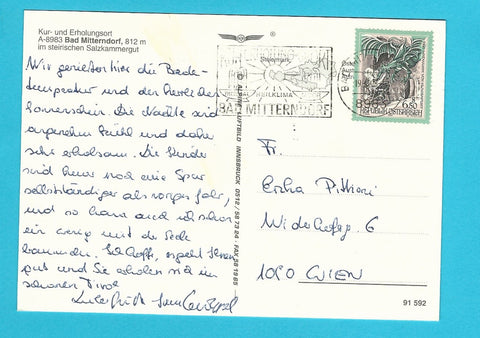 Kur- und Erholungsort
A-8983 Bad Mitterndorf, 812 m
im steirischen Salzkammergut
Wir genießen hier die Bade-
temperatur und den herrlichen
Sonnenschein. Die Nächte sind
angenehm kühl und daher
sehr erholsam. Die Kinder
sind heuer noch eine Spur
selbstständiger als voriges Jahr,
und so kann auch ich schon
ein wenig mit der Seele
baumeln. Ich hoffe, es geht Ihnen
gut und Sie erholen sich im
schönen Tirol
Liebe Grüße
®
ALPINE LUFTBILD INNSBRUCK 0512 / FAX
Steiermark
HEILKLIMA
BAD MITTERNDORF
8983
6.50
REPUBLIK ÖSTERREICH
Fr.
Erika Pittioni
6
WIEN
91 592